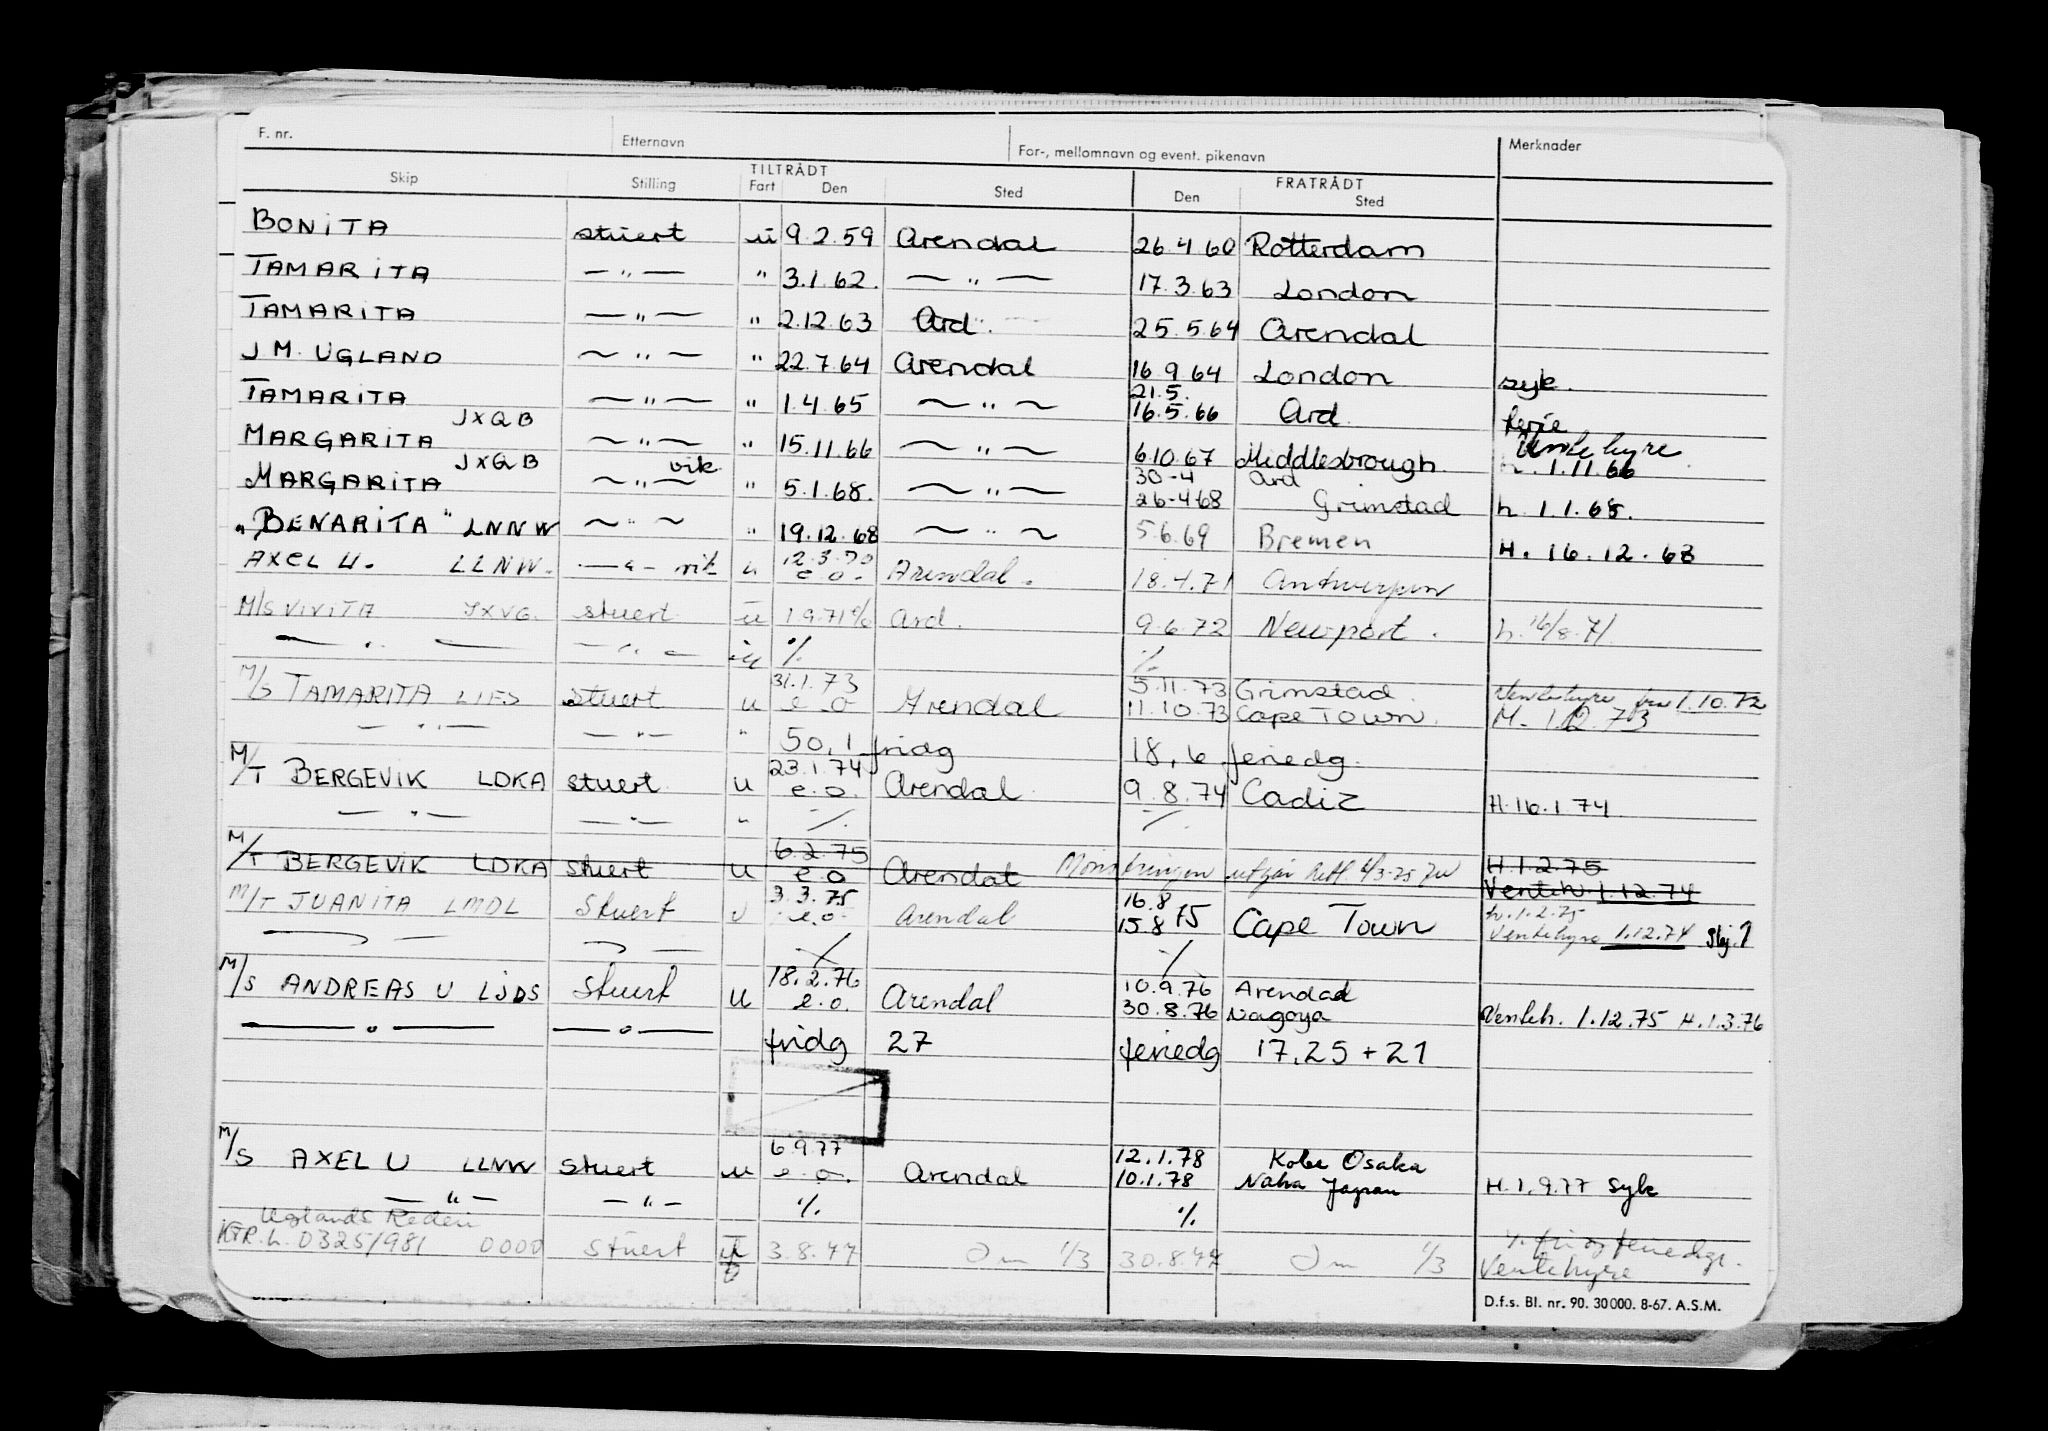 F. nr. Etternavn For-, mellomnavn og event. pikenavn Merknader
TILTRÅDT FRATRÅDT
Skip Stilling Fart Den Sted Den Sted
BONITA stuert u 9.2.59 Arendal 26.4.60 Rotterdam
TAMARITA — " — " 3.1.62. — " — 17.3.63 London
TAMARITA — " — " 2.12.63 Ard. 25.5.64 Arendal
J M. UGLAND — " — " 22.7.64 Arendal 16.9.64 London syk.
TAMARITA — " — " 1.4.65 — " — 21.5. 16.5.66 Ard. ferie
JXQB
MARGARITA — " — " 15.11.66 — " — 6.10.67 Middlesbrough. Ventehyre h. 1.11.66
JXQB vik
MARGARITA — " — " 5.1.68. — " — 30-4 Ard
26-4 68 Grimstad h. 1.1.68.
"BENARITA" LNNW — " — " 19.12.68 — " — 5.6.69 Bremen H. 16.12.68
AXEL U. LLNW. — " — vik u 12.3.70 e.o. Arendal. 18.4.71 Antwerpen
M/S VIVITA JXVG. stuert u 1.9.71 % Ard. 9.6.72 Newport. h. 16/8.71
— " — — " — u % %
M/S TAMARITA LIFS stuert u 31.1.73 e.o Arendal 5.11.73 Grimstad. Ventehyre fra 1.10.72
11.10.73 Cape Town. M. 1.2.73
— " — — " — " 50,1 fridg 18,6 feriedg.
M/T BERGEVIK LDKA stuert u 23.1.74 e.o. Arendal 9.8.74 Cadiz H.16.1.74
— " — — " — " % %
M/T BERGEVIK LDKA stuert u 6.2.75 e.o Arendal Mønstringen utgår 4/3-75 H.1.2.75
Venteh. 1.12.74
M/T JUANITA LMDL Stuert u 3.3.75 e.o. Arendal 16.8 15.8 75 Cape Town h. 1.2.75
Ventehyre 1.12.74
% %
M/S ANDREAS U LJDS Stuert u 18.2.76 e.o. Arendal 10.9.76 Arendal
30.8.76 Nagoya Venteh. 1.12.75 H.1.3.76
— " — — " — fridg 27 feriedg 17,25 + 21
M/S AXEL U LLNW stuert u 6.9.77 e.o. Arendal 12.1.78 Kobe Osaka
10.1.78 Naha Japan H.1.9.77 syk
— " — — " — % %
Uglands Rederi
KTR.L. 0325/981 0000 stuert u 3.8.77 1/3 30.8.77 1/3 Ventehyre
D.f.s. Bl. nr. 90. 30 000. 8-67. A.S.M.